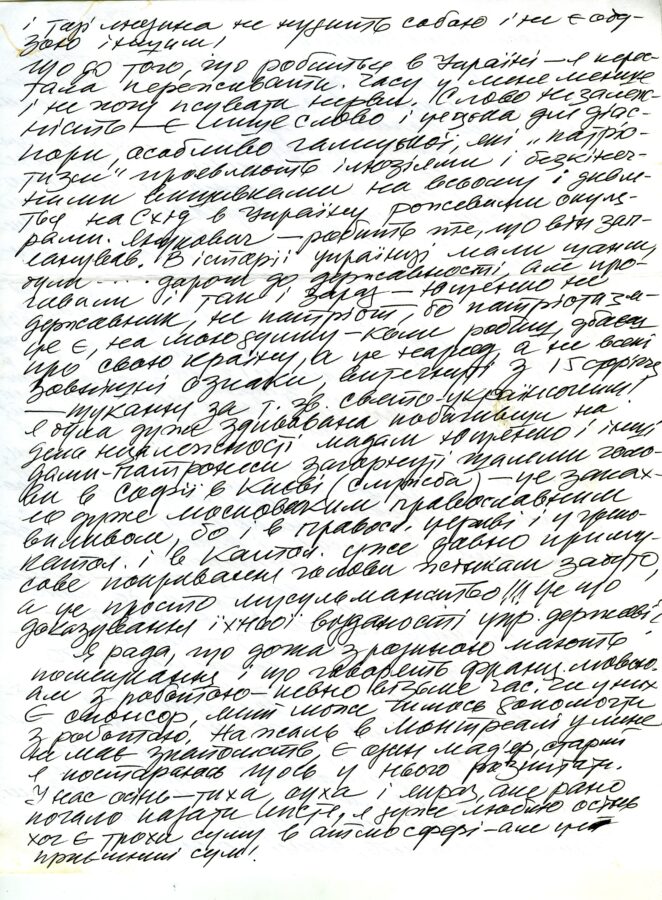 і тарі людина не нудить собою і не є оду-
зою іншим!
Що до того, що робиться в Україні — я перес-
тала переживати. Часу у мене менше
і не хочу псувати нерви. Слово незалеж-
ність — є лише слово і цяцька для діас-
пори, особливо галицької, які "патріо-
тизм" проявляють ілюзіями і безкінеч-
ними вишивками на всьому і дивлять-
ся на Схід в Україну рожевими окуля-
рами. Янукович — робить те, що він зап-
ланував. В історії українці мали шанси,
були .... дороги до державності, але про-
гавили і так і зараз — Ющенко не
державник, не патріот, бо патріотизм
це є, на мою думку — коли робиш, дбаєш
про свою країну, а це народ, а не всякі
зовнішні ознаки, витягнуті з 15 сторіччя
— шукання за т. зв. свято-українством!
Я була дуже здивована побачивши на
день незалежності мадам Ющенко і інші
дами-патронеси загорнуті шалями голо-
ви в Софії в Києві (служба) — це запах-
ло дуже московським православним
впливом, бо і в правосл. церкві і у греко
катол. і в катол. уже давно приму-
сове покривання голови жінкам забуто,
а це просто мусульманство!!! Це що
доказування їхньої відданості укр. державі?
Я рада, що дожа з родиною мають
помешкання і що говорить франц. мовою
але з роботою — певно візьме час. Чи у них
є спонсор, який може чимось допомогти
з роботою. На жаль в Монтреалі у мене
не має знайомств, є один маляр, старий
я постараюсь щось у нього розпитати.
У нас осінь — тиха, суха і гарна, але рано
почало падати листя, я дуже люблю осінь
хоч є трохи суму в атмосфері — але це
приємний сум!